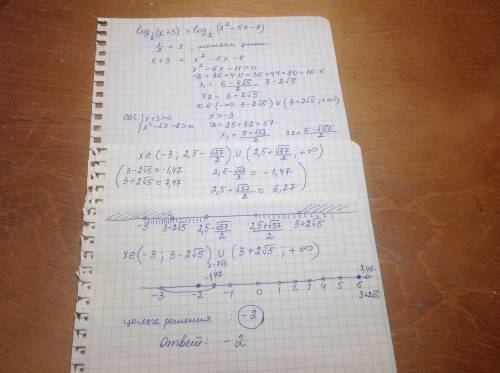 log½(x+3) > log½(x²-5x-8)
½ < 1, меняем знак
x+3 < x²-5x-8
x²-6x-11>0
D=36+4·11=36+44=80=16·5
x₁ = (6-4√5)/2 = 3-2√5
x₂ = 3+2√5
x∈(-∞; 3-2√5)∪(3+2√5; +∞)
{x+3>0 x>-3
{x²-5x-8>0 D=25+32=57
x₁ = (5+√57)/2 x₂ = (5-√57)/2
x∈(-3; 2,5-√57/2)∪(2,5+√57/2; +∞)
(3-2√5≈-1,47 2,5-√57/2≈-1,47)
(3+2√5≈7,47 2,5+√57/2≈6,27)
-3 3-2√5 2,5-√57/2 2,5+√57/2 3+2√5
x∈(-3; 3-2√5)∪(3+2√5; +∞)
3-2√5
-1,47 7,47
-3 -2 -1 0 1 2 3 4 5 6
3+2√5
целые решения: -2
Ответ: -2